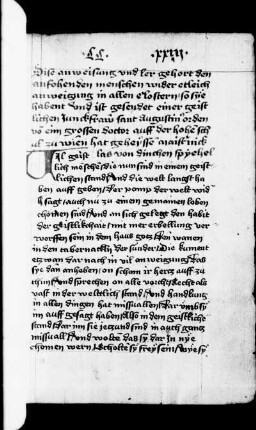 xxxij
Dise anweisung vnd ler gehort den
anfohenden menschen wider etleich
anweigung in allen clostern so sye
habent vnd ist gesendet einer geist
lichen Junckfraw sant augustin orden
vō eim grossen doctor auff der hohe sch
ul zu wien hat geheysse maist nick
las von dinckenspyehel
lich mesche die nun sind in einem geist
lichen stand vnd die welt langst ha
ben auff geben der pomp der welt vnd
auch nu zu einem gemainen loben
sind vnd an sich gelegt den habit
der geistlichait mit mer erbollung ver
worffen sein in dem haus gotz den wanen
in den tabernackln der sunder Die kument
etzwan dar nach in vil anweigung das
sye dan anheben on scham ir hertz auff zu
thun vnd sprechen an alle vorcht Recht als
vast in der weltlich stand vnd handlung
in allen dingen hat missuallen dar vmb sy
im auff gesagt haben also in dem geistliche
stand dar inn sie jetzund sind in auch gantz
missuall vnd wolte das sy dar In nye
chomen wern vnd solte sy frey sein sye sy